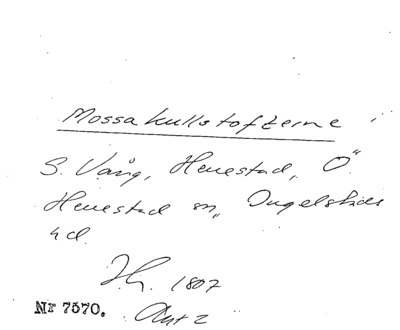 Mossakullstofterne
S. Vång, Henestad, Ö
Henestad sn, Ingelstads
hd.
1807
Nr 7570. Akt 2